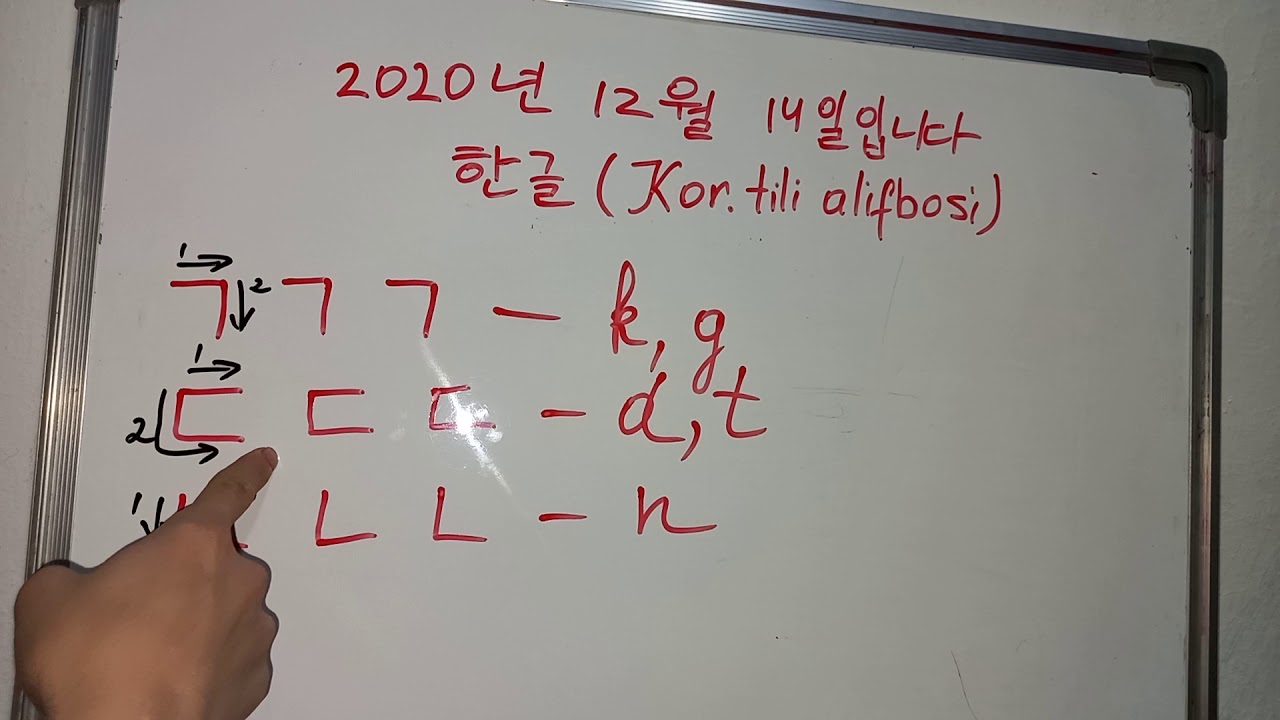 2020년 12월 14일입니다
한글 (Kor.tili alifbosi)
1 2
ㄱ ㄱ ㄱ - k, g
1
2 ㄷ ㄷ ㄷ - d, t
1 ㄴ ㄴ ㄴ - n